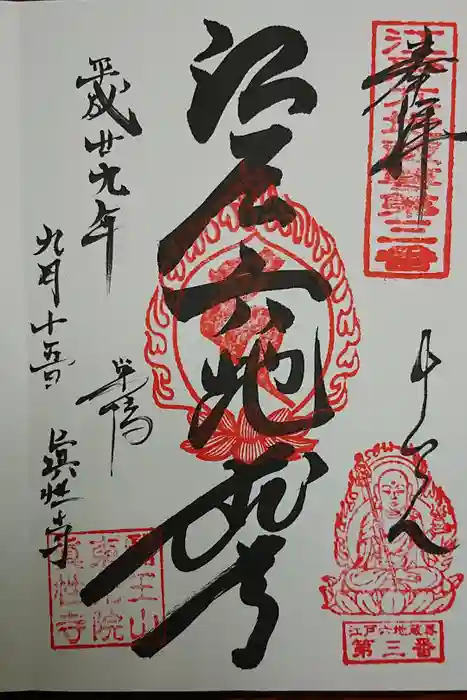 奉拝
江戸六地蔵尊第三番
江戸六地蔵尊
第三番
江戸六地蔵尊
平成廿九年
九月十五日
眞性寺
醫王山
東光院
眞性寺